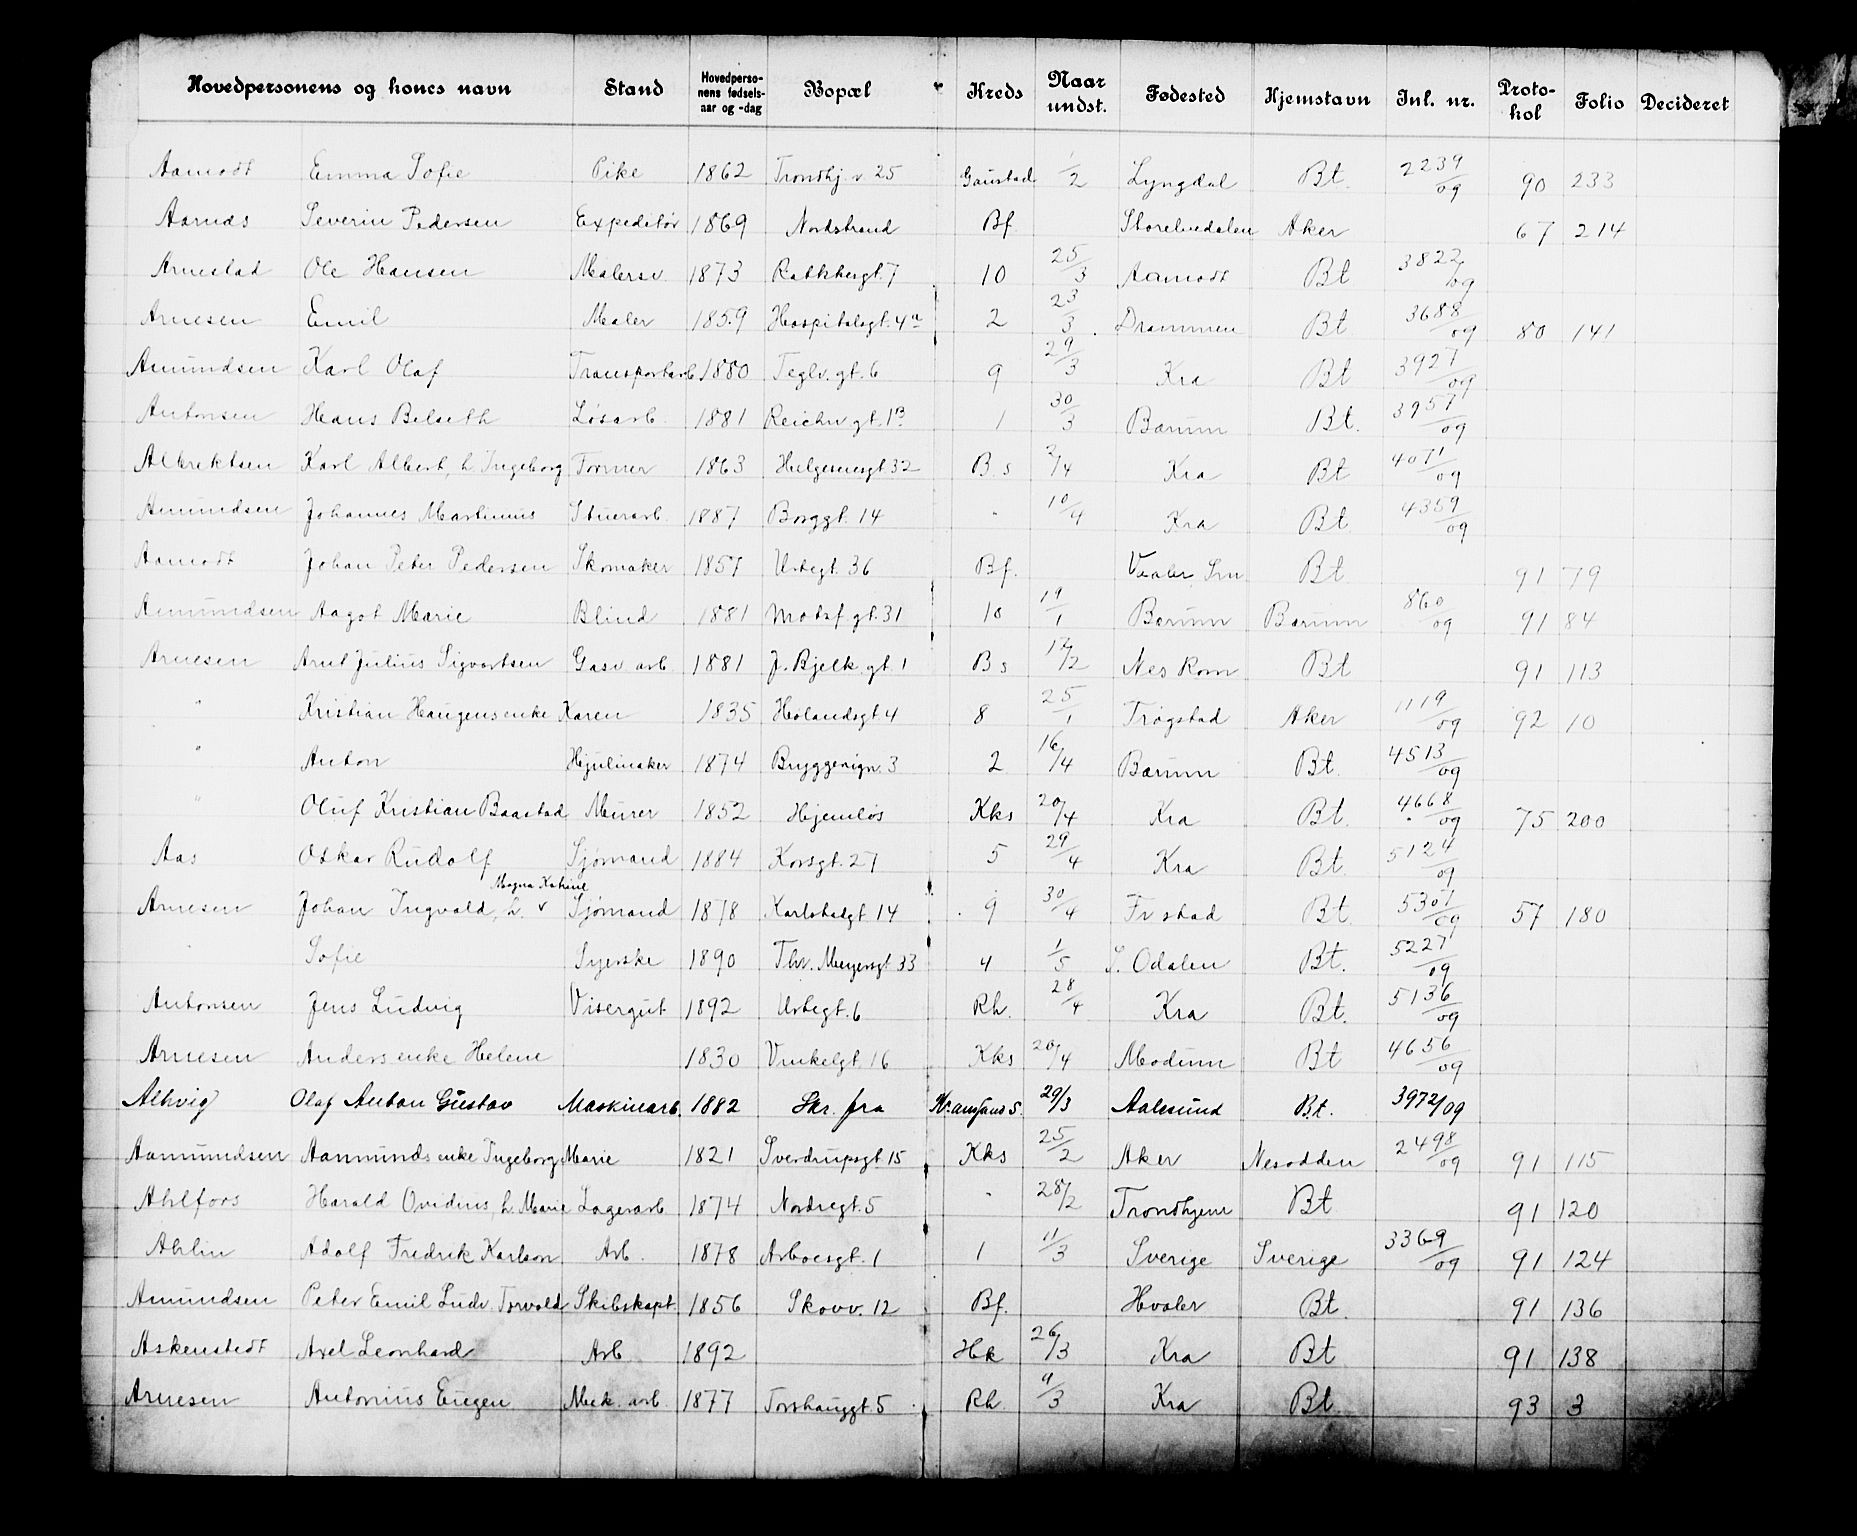 Hovedpersonens og kones navn Stand Hovedpersonens fødselsaar og -dag Bopæl Kreds Naar undst. Fødested Hjemstavn Inl. nr. Protokol Folio Decideret
Aamodt Emma Sofie Pike 1862 Trondhj. v. 25 Gaustad 1/2 Lyngdal Bt. 2239/09 90 233
Aarnæs Severin Pedersen Expeditør 1869 Nordstrand Bf Storelvedalen Aker 67 214
Arnestad Ole Hansen Malersv. 1873 Rathkesgt. 7 10 25/3 Aamodt Bt 3822/09
Arnesen Emil Maler 1859 Hospitalsgt. 4a 2 23/3 Drammen Bt 3688/09 80 141
Amundsen Karl Olaf Transportarb 1880 Teglv. gt. 6 9 29/3 Kra Bt 3927/09
Antonsen Hans Belseth Løsarb. 1881 Reichw gt. 1B 1 30/3 Bærum Bt. 3957/09
Albrektsen Karl Albert, h. Ingeborg Tormer 1863 Helgesensgt 32 B s 2/4 Kra Bt 4071/09
Amundsen Johannes Martinius Stuerarb. 1887 Borggt. 14 " 10/4 Kra Bt. 4359/09
Aamodt Johan Peter Pedersen Skomaker 1857 Urtegt. 36 Bf. Vaaler Sm Bt 91 79
Amundsen Aagot Marie Blind 1881 Motzf gt. 31 10 19/1 Bærum Bærum 860/09 91 84
Arnesen Arnt Julius Sigvartsen Gasv arb. 1881 J. Bjelk. gt. 1 B s 17/2 Nes Rom Bt 91 113
" Kristian Haugens enke Karen 1835 Hølandsgt 4 8 25/1 Trøgstad Aker 1119/09 92 10
" Anton Hjulmaker 1874 Bryggerign. 3 2 16/4 Bærum Bt. 4513/09
" Oluf Kristian Baastad Murer 1852 Hjemløs Kks 20/4 Kra Bt. 4668/09 75 200
Aas Oskar Rudolf Sjømand 1884 Korsgt. 27 5 29/4 Kra Bt. 5124/09
Magna Katrine
Arnesen Johan Ingvald, h. v Sjømand 1878 Karlstadgt. 14 9 30/4 Fr stad Bt. 5307/09 57 180
" Sofie Syerske 1890 Thv. Meyersgt 33 4 1/5 S. Odalen Bt. 5227/09
Antonsen Jens Ludvig Visergut 1892 Urtegt. 6 Rh. 28/4 Kra Bt. 5136/09
Arnesen Anders enke Helene 1830 Vinkelgt. 16 Kks 20/4 Modum Bt 4656/09
Alhvig Olaf Anton Gustav Maskinarb. 1882 Skr. fra Kr.ansand S. 29/3 Aalesund Bt. 3972/09
Aamundsen Aanunds enke Ingeborg Marie 1821 Sverdrupsgt 15 Kks 25/2 Aker Nesodden 2498/09 91 115
Ahlfors Harald Ovidius, h. Marie Lagerarb 1874 Nordregt. 5 " 28/2 Trondhjem Bt 91 120
Ahlin Adolf Fredrik Karlson Arb. 1878 Arboesgt. 1 1 11/3 Sverige Sverige 3369/09 91 124
Amundsen Peter Emil Ludv. Torvald Skibskapt. 1856 Skovv. 12 Bf. Hvaler Bt. 91 136
Askenstedt Axel Leonhard Arb 1892 Hk 26/3 Kra Bt 91 138
Arnesen Antonius Eugen Mek. arb. 1877 Torshauggt 5 Rh 9/3 Kra Bt 93 3